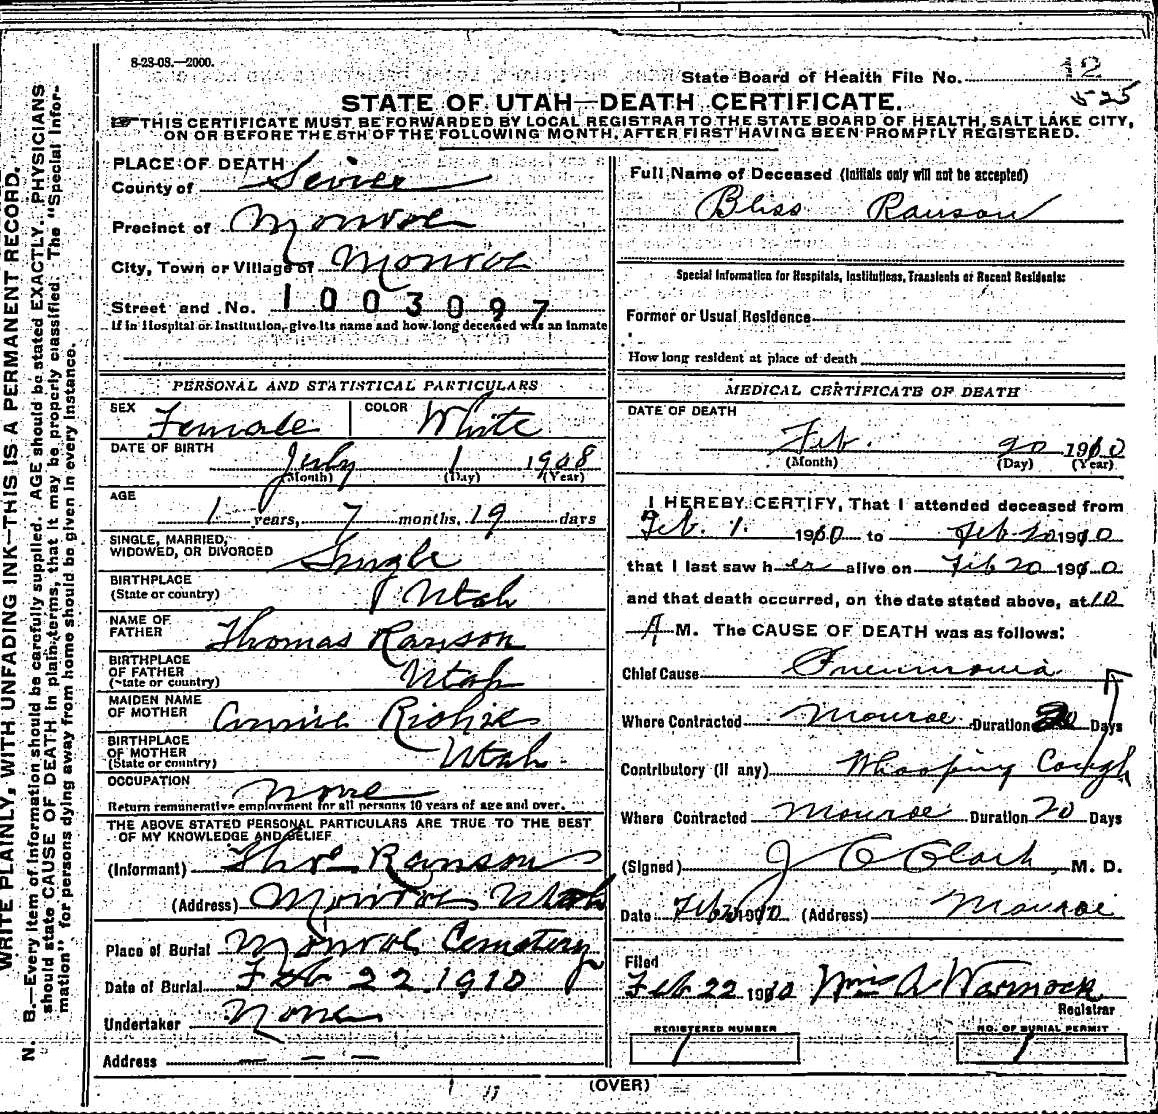 8-23-08.—2000.
State Board of Health File No. 12
525
STATE OF UTAH—DEATH CERTIFICATE.
THIS CERTIFICATE MUST BE FORWARDED BY LOCAL REGISTRAR TO THE STATE BOARD OF HEALTH, SALT LAKE CITY,
ON OR BEFORE THE 5TH OF THE FOLLOWING MONTH, AFTER FIRST HAVING BEEN PROMPTLY REGISTERED.
WRITE PLAINLY, WITH UNFADING INK—THIS IS A PERMANENT RECORD.
N. B.—Every item of information should be carefully supplied. AGE should be stated EXACTLY. PHYSICIANS
should state CAUSE OF DEATH in plain terms, that it may be properly classified. The "Special Infor-
mation" for persons dying away from home should be given in every instance.
PLACE OF DEATH
County of Sevier
Precinct of Monroe
City, Town or Village of Monroe
Street and No. 1003097
If in Hospital or Institution, give its name and how long deceased was an inmate
PERSONAL AND STATISTICAL PARTICULARS
SEX Female COLOR White
DATE OF BIRTH July 1 1908
(Month) (Day) (Year)
AGE
1 years, 7 months, 19 days
SINGLE, MARRIED,
WIDOWED, OR DIVORCED Single
BIRTHPLACE
(State or country) Utah
NAME OF
FATHER Thomas Ranson
BIRTHPLACE
OF FATHER
(State or country) Utah
MAIDEN NAME
OF MOTHER Annie Richie
BIRTHPLACE
OF MOTHER
(State or country) Utah
OCCUPATION None
Return remunerative employment for all persons 10 years of age and over.
THE ABOVE STATED PERSONAL PARTICULARS ARE TRUE TO THE BEST
OF MY KNOWLEDGE AND BELIEF
(Informant) Thos Ranson
(Address) Monroe Utah
Place of Burial Monroe Cemetery
Date of Burial Feb 22 1910
Undertaker None
Address — — —
Full Name of Deceased (Initials only will not be accepted)
Bliss Ranson
Special Information for Hospitals, Institutions, Transients or Recent Residents:
Former or Usual Residence
How long resident at place of death
MEDICAL CERTIFICATE OF DEATH
DATE OF DEATH
Feb. 20 1910
(Month) (Day) (Year)
I HEREBY CERTIFY, That I attended deceased from
Feb. 1. 1910 to Feb 20 1910
that I last saw her alive on Feb 20 1910
and that death occurred, on the date stated above, at 10
A M. The CAUSE OF DEATH was as follows:
Chief Cause Pneumonia
Where Contracted Monroe Duration 20 Days
Contributory (if any) Whooping Cough
Where Contracted Monroe Duration 20 Days
(Signed) J C Clark, M. D.
Date Feb 1910 (Address) Monroe
Filed
Feb 22 1910 Wm A Warnock
Registrar
REGISTERED NUMBER
1
NO. OF BURIAL PERMIT
1
(OVER)